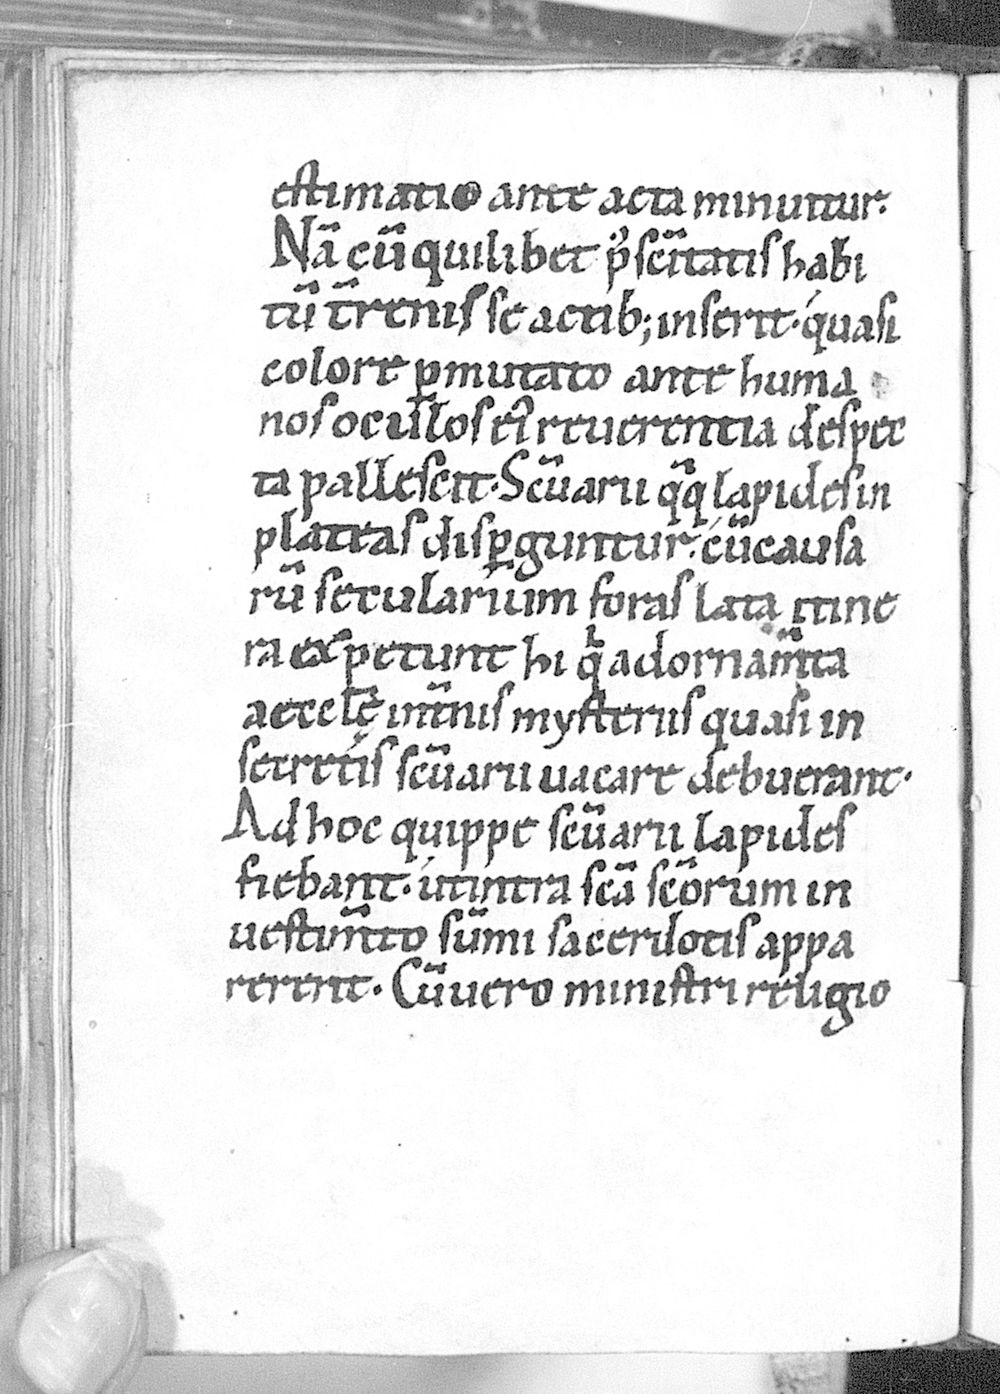 estimatio ante acta minuitur.
Nā cū quilibet p̃ sc̄itatis habi
tū t̄renis se actib; inserit. quasi
colore p̱mutato ante huma
nos oculos eiꝰ reuerentia despec
ta pallescit. Sc̄uarii q̄q lapides in
plateas disp̱guntur. cū causa
rū secularium foras lata itine
ra expetunt hi q̄ adornam̄ta
aecclę int̄nis mysteriis quasi in
secretis sc̄uarii uacare debuerant.
Ad hoc quippe sc̄uarii lapides
fiebant. ut intra sc̄a sc̄orum in
uestim̄to sūmi sacerdotis appa
rerent. Cū uero ministri religio